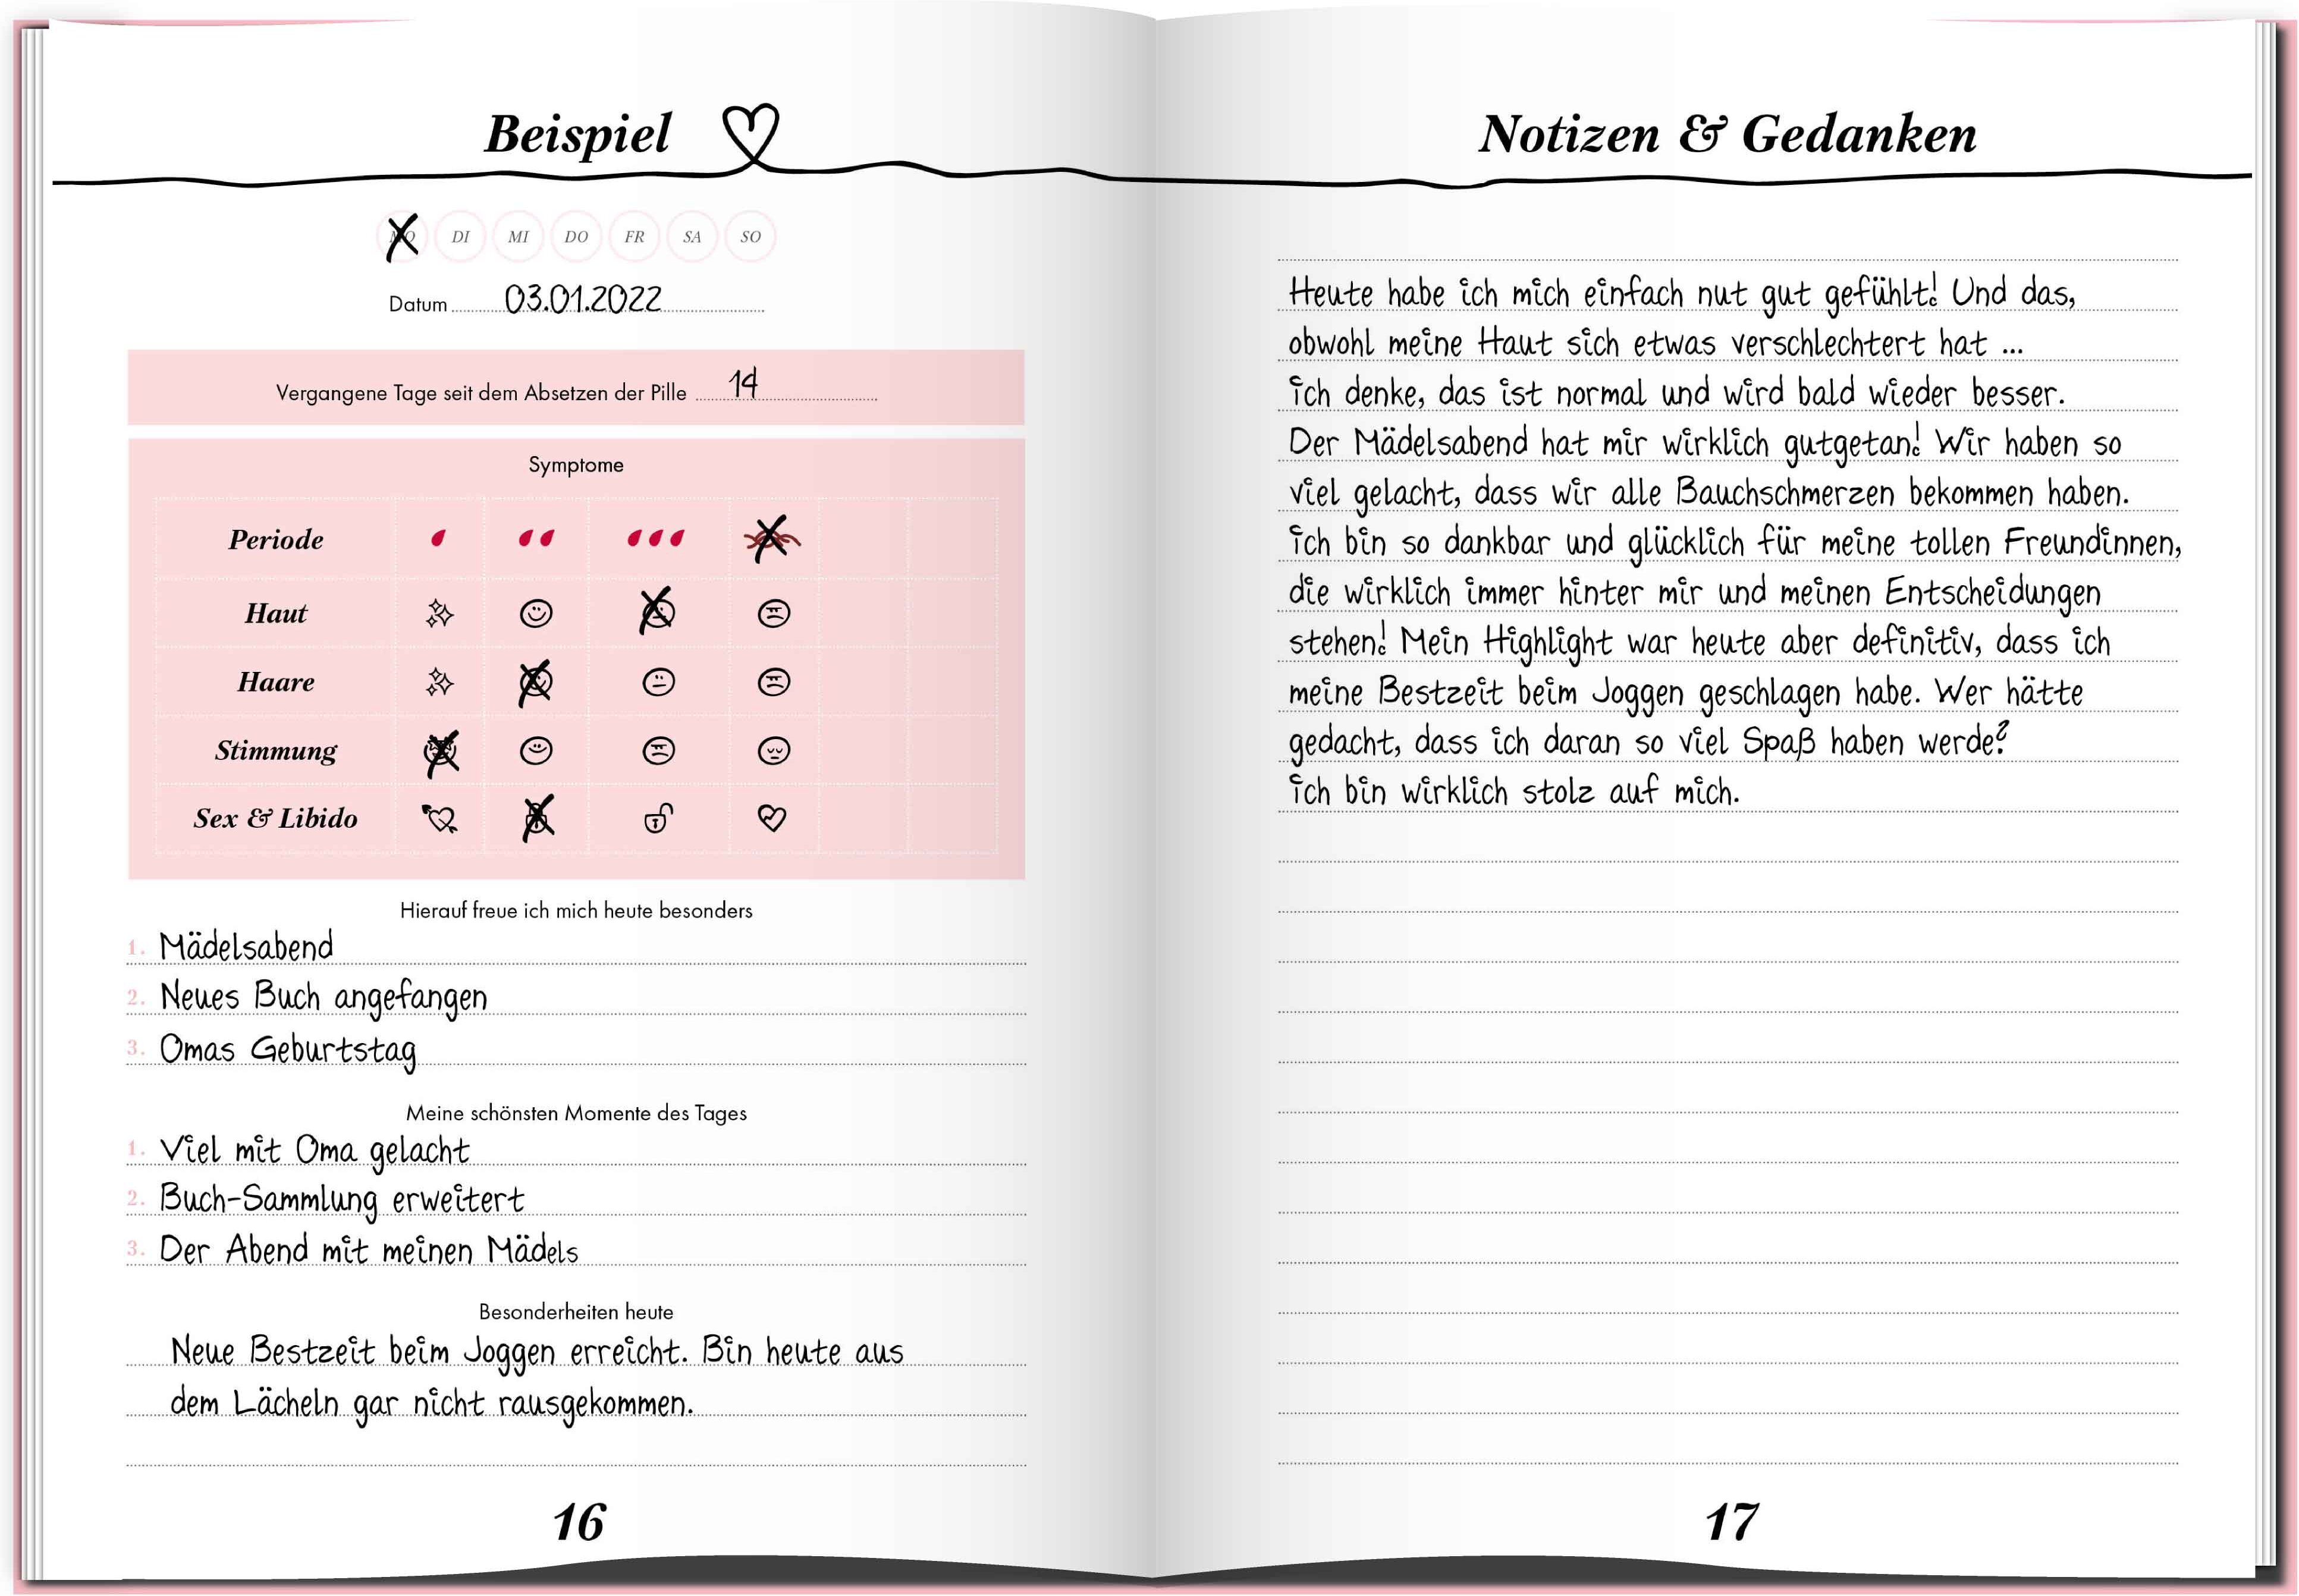 Beispiel
MO DI MI DO FR SA SO
Datum 03.01.2022
Vergangene Tage seit dem Absetzen der Pille 14
Symptome
Periode
Haut
Haare
Stimmung
Sex & Libido
Hierauf freue ich mich heute besonders
1. Mädelsabend
2. Neues Buch angefangen
3. Omas Geburtstag
Meine schönsten Momente des Tages
1. Viel mit Oma gelacht
2. Buch-Sammlung erweitert
3. Der Abend mit meinen Mädels
Besonderheiten heute
Neue Bestzeit beim Joggen erreicht. Bin heute aus
dem Lächeln gar nicht rausgekommen.
16
Notizen & Gedanken
Heute habe ich mich einfach nut gut gefühlt! Und das,
obwohl meine Haut sich etwas verschlechtert hat ...
Ich denke, das ist normal und wird bald wieder besser.
Der Mädelsabend hat mir wirklich gutgetan! Wir haben so
viel gelacht, dass wir alle Bauchschmerzen bekommen haben.
Ich bin so dankbar und glücklich für meine tollen Freundinnen,
die wirklich immer hinter mir und meinen Entscheidungen
stehen! Mein Highlight war heute aber definitiv, dass ich
meine Bestzeit beim Joggen geschlagen habe. Wer hätte
gedacht, dass ich daran so viel Spaß haben werde?
Ich bin wirklich stolz auf mich.
17